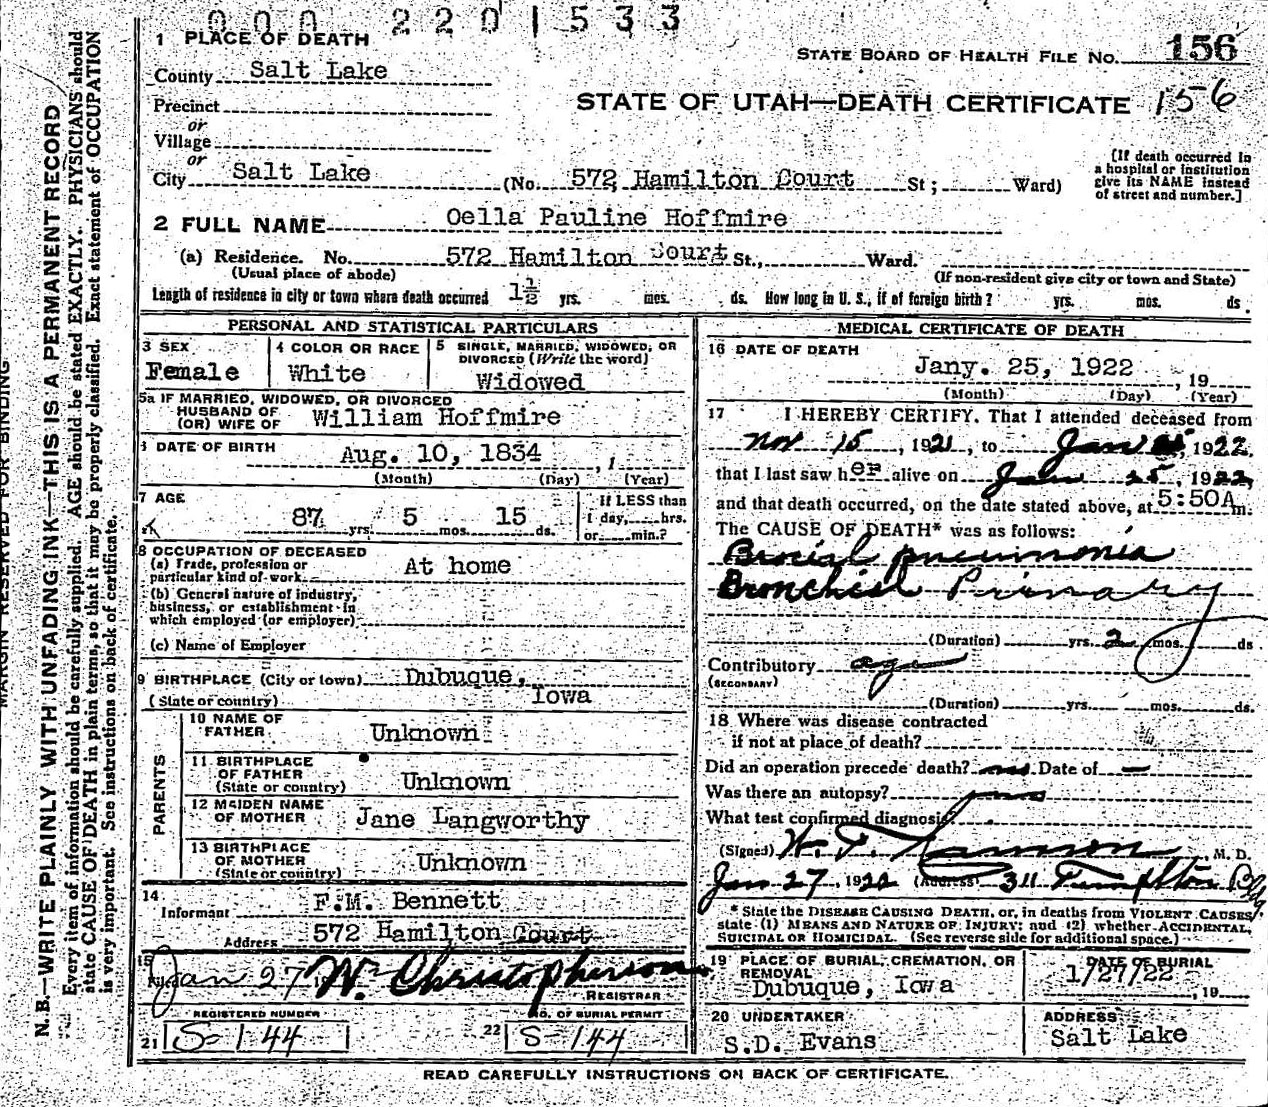 000 220 1533
1 PLACE OF DEATH
STATE BOARD OF HEALTH FILE NO. 156
County Salt Lake
STATE OF UTAH—DEATH CERTIFICATE 156
Precinct
or
Village
or
City Salt Lake (No. 572 Hamilton Court St; Ward)
[If death occurred in a hospital or institution give its NAME instead of street and number.]
2 FULL NAME Oella Pauline Hoffmire
(a) Residence. No. 572 Hamilton Court St., Ward.
(Usual place of abode) (If non-resident give city or town and State)
Length of residence in city or town where death occurred 1½ yrs. mos. ds. How long in U. S., if of foreign birth? yrs. mos. ds
PERSONAL AND STATISTICAL PARTICULARS
3 SEX
Female
4 COLOR OR RACE
White
5 SINGLE, MARRIED, WIDOWED, OR
DIVORCED (Write the word)
Widowed
5a IF MARRIED, WIDOWED, OR DIVORCED
HUSBAND OF
(OR) WIFE OF William Hoffmire
DATE OF BIRTH
Aug. 10, 1834 , 1
(Month) (Day) (Year)
7 AGE
87 yrs. 5 mos. 15 ds.
If LESS than
1 day, hrs.
or min.?
8 OCCUPATION OF DECEASED
(a) Trade, profession or
particular kind of work At home
(b) General nature of industry,
business, or establishment in
which employed (or employer)
(c) Name of Employer
9 BIRTHPLACE (City or town) Dubuque,
(State or country) Iowa
PARENTS
10 NAME OF
FATHER Unknown
11 BIRTHPLACE
OF FATHER
(State or country) Unknown
12 MAIDEN NAME
OF MOTHER Jane Langworthy
13 BIRTHPLACE
OF MOTHER
(State or country) Unknown
14
Informant F.M. Bennett
Address 572 Hamilton Court
15
Filed Jan 27 W. Christopherson
REGISTRAR
REGISTERED NUMBER
21 S-144
NO. OF BURIAL PERMIT
22 S-144
MEDICAL CERTIFICATE OF DEATH
16 DATE OF DEATH
Jany. 25, 1922 , 19
(Month) (Day) (Year)
17 I HEREBY CERTIFY, That I attended deceased from
Nov 15, 1921, to Jan , 1922.
that I last saw her alive on Jan 25, 1922,
and that death occurred, on the date stated above, at 5:50A m.
The CAUSE OF DEATH* was as follows:
pneumonia
Bronchial Primary
(Duration) yrs. 2 mos. ds
Contributory age
(SECONDARY)
(Duration) yrs. mos. ds.
18 Where was disease contracted
if not at place of death?
Did an operation precede death? no Date of —
Was there an autopsy?
What test confirmed diagnosis?
(Signed) W. T. , M. D.
Jan 27, 1922 (Address) 311 Templeton Bldg
* State the DISEASE CAUSING DEATH, or, in deaths from VIOLENT CAUSES,
state (1) MEANS AND NATURE OF INJURY; and (2) whether ACCIDENTAL,
SUICIDAL OR HOMICIDAL. (See reverse side for additional space.)
19 PLACE OF BURIAL, CREMATION, OR
REMOVAL
Dubuque, Iowa
DATE OF BURIAL
1/27/22
, 19
20 UNDERTAKER
S.D. Evans
ADDRESS
Salt Lake
READ CAREFULLY INSTRUCTIONS ON BACK OF CERTIFICATE.
MARGIN RESERVED FOR BINDING
N. B.—WRITE PLAINLY WITH UNFADING INK—THIS IS A PERMANENT RECORD
Every item of information should be carefully supplied. AGE should be stated EXACTLY. PHYSICIANS should
state CAUSE OF DEATH in plain terms, so that it may be properly classified. Exact statement of OCCUPATION
is very important. See instructions on back of certificate.